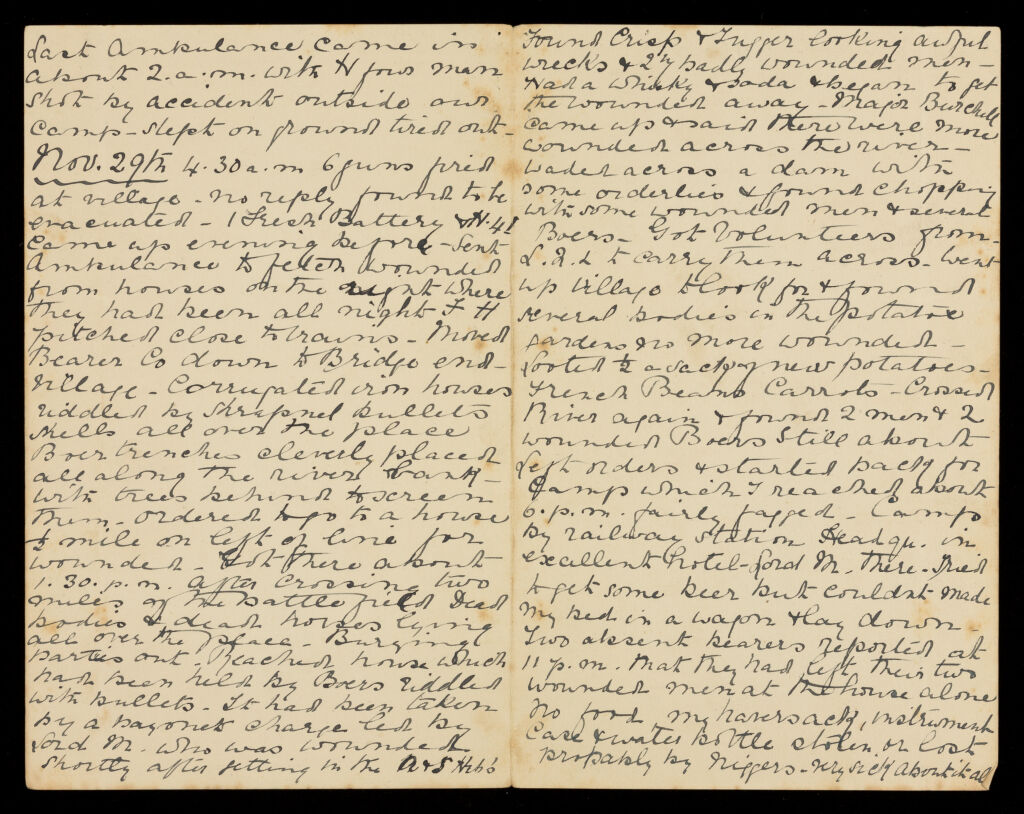 Last Ambulance came in
about 2.a.m. with 4 four man
shot by accident outside our
camp - slept on ground tired out -
Nov. 29th 4.30 a.m 6 guns fired
at village - no reply found to be
evacuated - 1 Fresh Battery & N. 41
came up evening before - Sent
Ambulance to fetch wounded
from houses on the right where
they had been all night F H
pitched close to trains - Moved
Bearer Co down to Bridge end
Village - Corrugated iron houses
riddled by Shrapnel bullets
shells all over the place
Boer trenches cleverly placed
all along the river bank -
with trees behind to screen
them - ordered to go to a house
½ mile on left of line for
wounded - Got there about
1.30. p.m. after crossing two
miles of the battle field Dead
bodies & dead horses lying
all over the place - Burying
parties out - Reached house which
had been held by Boers riddled
with bullets - It had been taken
by a bayonet charge led by
Lord M. who was wounded
shortly after getting in the A&S Hrs
Found Crisp & Tugger looking awful
wrecks & 24 badly wounded men -
Had a whisky & soda & began to get
the wounded away - Major Burchell
came up & said there were more
wounded across the river -
waded across a dam with
some orderlies & found Chopping
with some wounded men & several
Boers - Got Volunteers from
L. R. L to carry them across - went
up village to look for & found
several bodies in the potatoe
gardens no more wounded -
Looted ½ a sack of new potatoes -
French Beans Carrots - Crossed
River again & found 2 men & 2
wounded Boers still about
Left orders & started back for
Camp which I reached about
6.p.m. fairly fagged - Camp
by railway station Headqu. in
excellent hotel - Lord M. there - Tried
to get some beer but couldnt made
my bed in a wagon & lay down -
Two absent bearers reported at
11 p.m. that they had left their two
wounded men at the house alone
no food, my haversack, instrument
case & water bottle stolen or lost
probably by niggers - very sick about it all